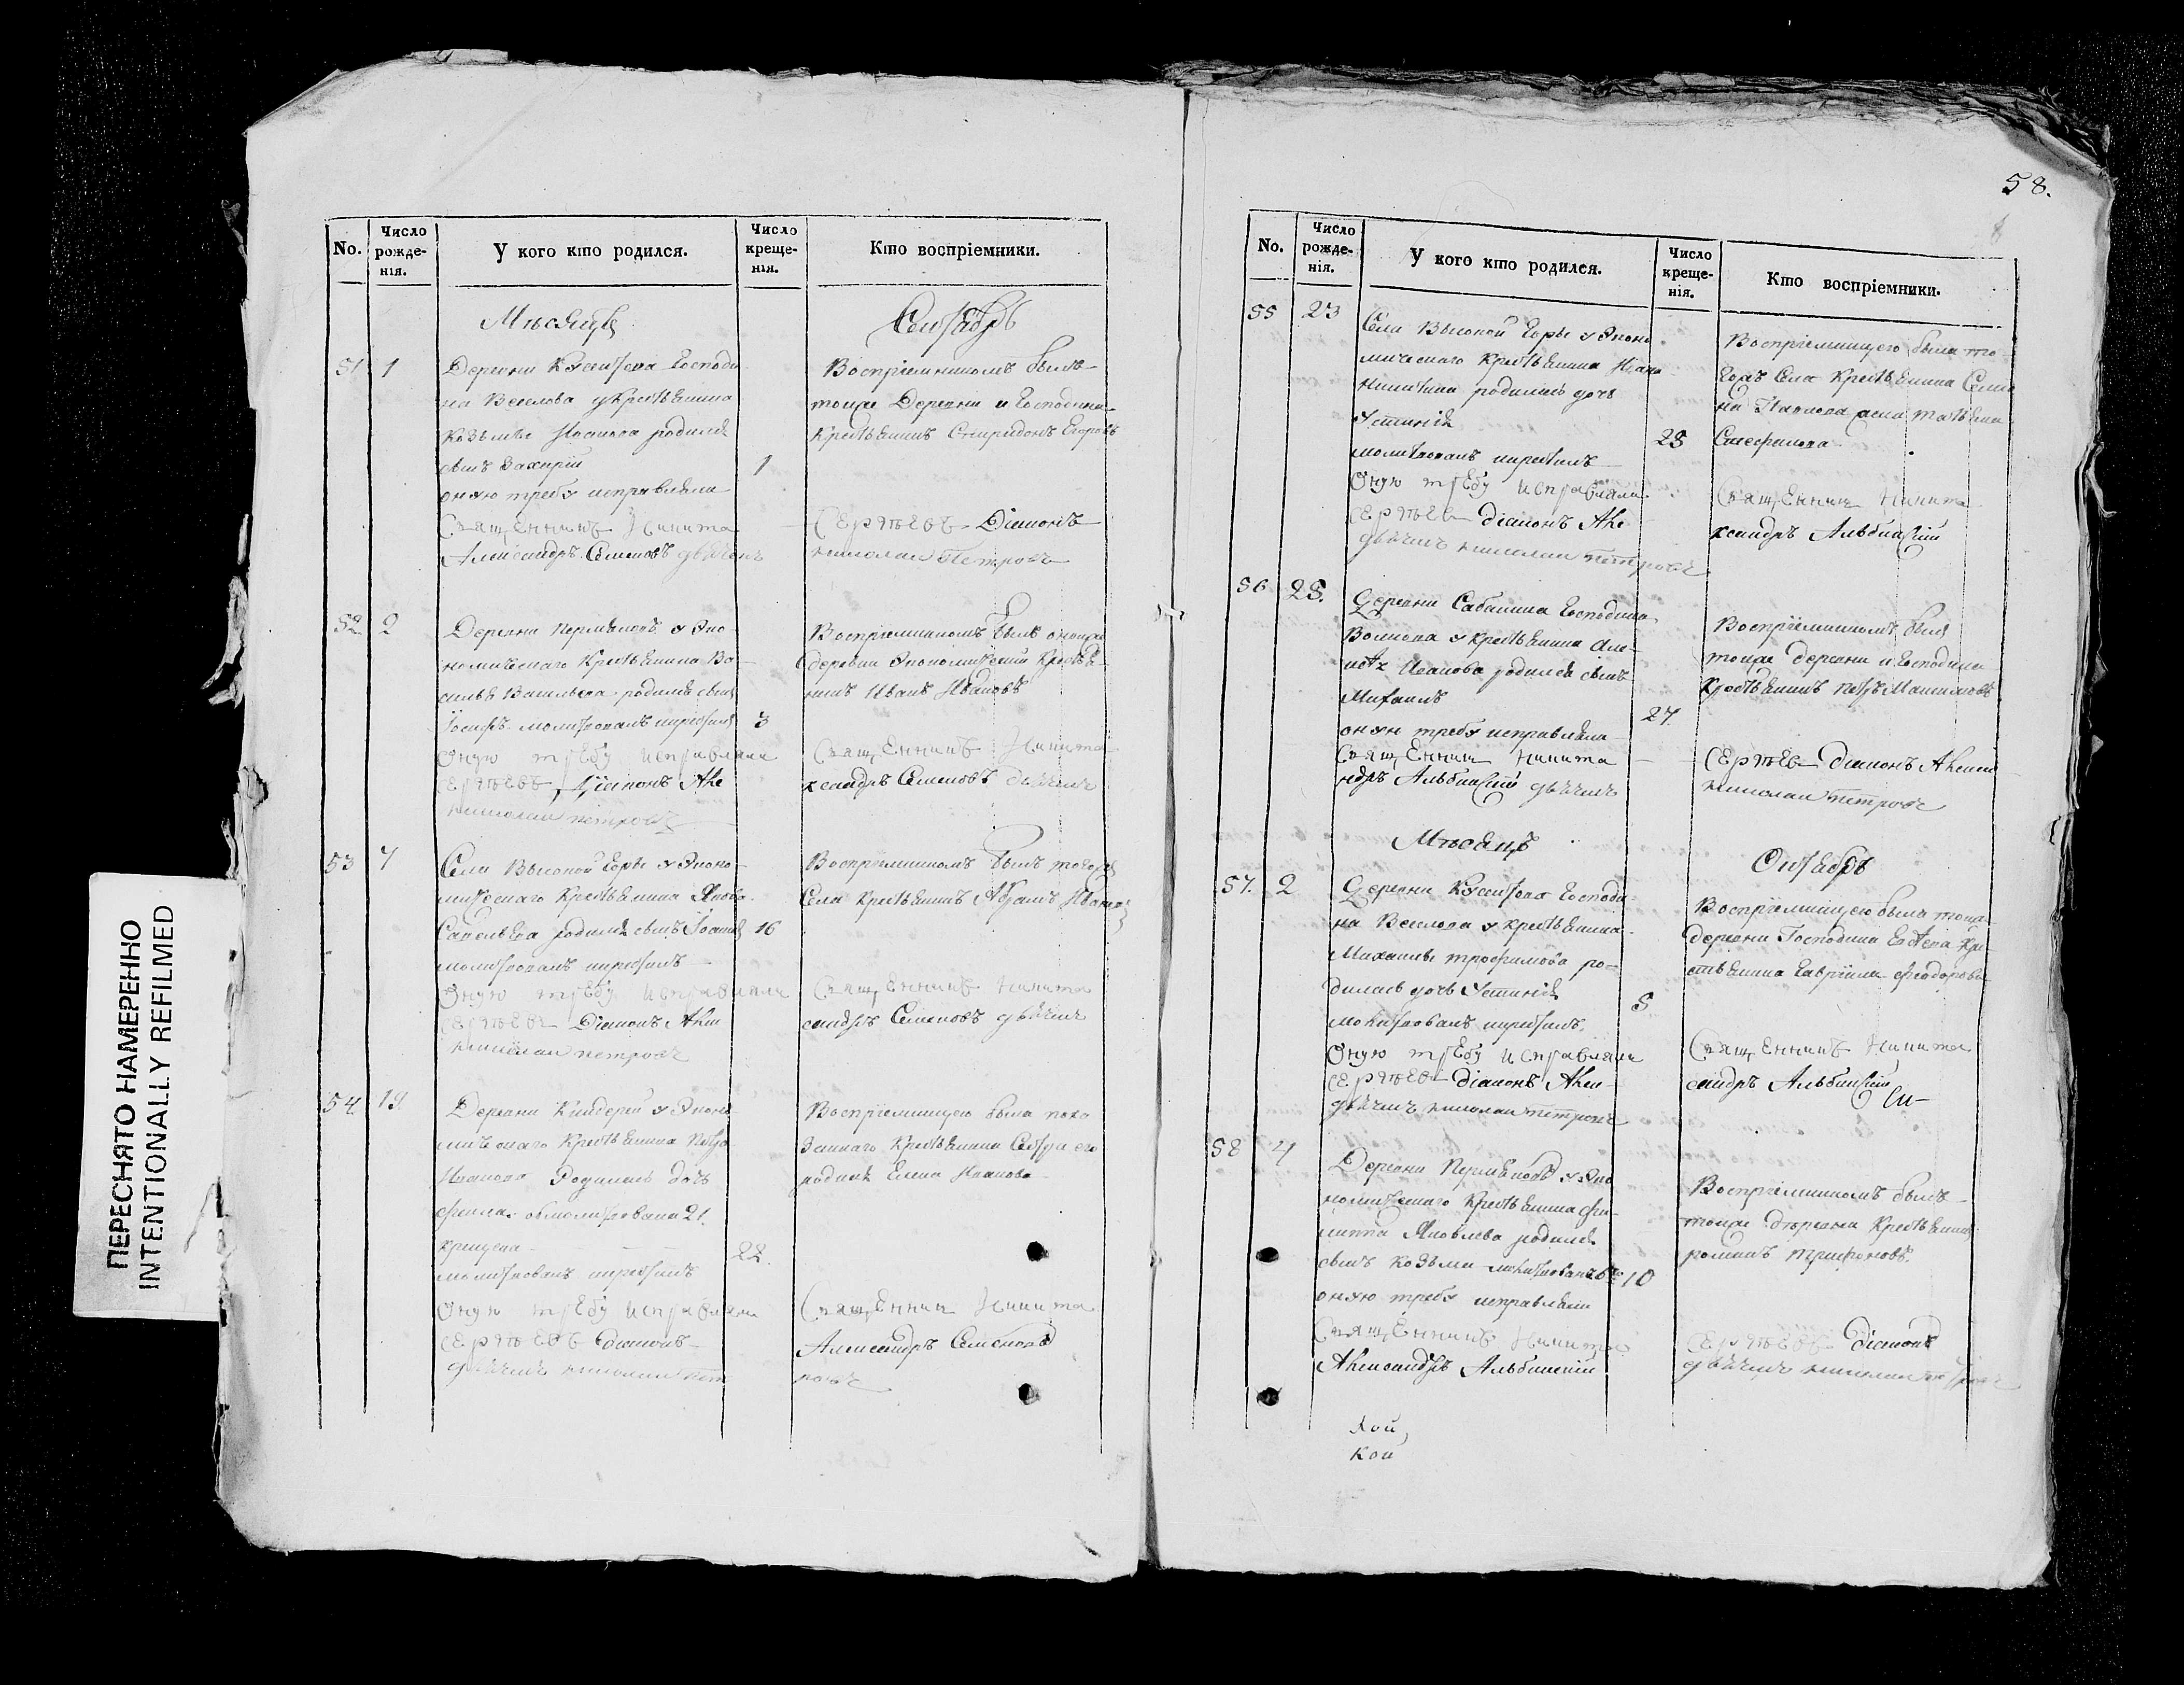 ПЕРЕСНЯТО НАМЕРЕННО
INTENTIONALLY REFILMED
No.
Число рожде-нія.
У кого кто родился.
Число креще-нія.
Кто воспріемники.
Мѣсяцъ
Сентябрь
51 1
Деревни Господи
на Веселова крестьянина
Козьмы Иванова родился
сынъ Захарій
1
оную требу исправляли
Священникъ Никита
Александръ Семеновъ дьячекъ
Воспріемникомъ былъ
тоиже Деревни и Господина
Крестьянинъ Спиридонъ Егоровъ
Сергѣевъ Діаконъ
николай Петровъ
52 2
Деревни Пермяковъ у Эко
номическаго Крестьянина Ва
силья Васильева родился сынъ
Іосифъ молитвовалъ икрестилъ
3
Оную требу исправляли
Сергѣевъ Діаконъ Але
николай петровъ
Воспріемникомъ былъ оноиже
деревни Экономическій Крестья
нинъ Иванъ Ивановъ
Священникъ Никита
ксандръ Семеновъ дьячекъ
53 7
Села Высокой Горы у Эконо
мическаго Крестьянина Якова
Савельева родился сынъ Іоаннъ
16
молитвовалъ икрестилъ
Оную требу исправляли
Сергѣевъ Діаконъ Алек
николай петровъ
Воспріемникомъ былъ тогожъ
Села Крестьянинъ Абрамъ Ивановъ
Священникъ Никита
сандръ Семеновъ дьячекъ
54. 19.
Деревни Киндерей у Эконо
мическаго Крестьянина Петра
Иванова Родилась дочь
обмолитвована 21.
крещена
22.
молитвовалъ икрестилъ
Оную требу исправляли
Сергѣевъ діаконъ
дьячекъ николай пет
Воспріемницею была пока
заннаго Крестьянина Сестра его
родная Елена Иванова
Священникъ Никита
Александръ Семеновъ
ровъ
58.
No.
Число рожде-нія.
У кого кто родился.
Число креще-нія.
Кто воспріемники.
55 23
Села Высокой Горы у Эконо
мическаго Крестьянина Ивана
Никитина родилась дочь
Устинія
25
молитвовалъ икрестилъ
Оную требу исправляли
Сергѣевъ діаконъ Але
дьячекъ николай петровъ
Воспріемницею была то
гожъ Села Крестьянина Семе
на Павлова жена Татьяна
Священникъ Никита
ксандръ Альбинскій
56 25.
Деревни Сабакина Господина
Волкова у крестьянина Але
ксѣя Иванова родился сынъ
Михаилъ
27.
оную требу исправляли
Священникъ Никита
ндръ Альбинскій дьячекъ
Воспріемникомъ былъ
тоиже деревни и Господина
Крестьянинъ Петръ Максимовъ
Сергѣевъ Діаконъ Алекса
николай петровъ
Мѣсяцъ
Октябрь
57. 2
Деревни Господи
на Веселова у крестьянина
Михаилы трофимова ро
дилась дочь Устинія
5
молитвовалъ икрестилъ
Оную требу исправляли
Сергѣевъ діаконъ Алек
дьячекъ николай петровъ
Воспріемницею была тоиже
деревни Господина Кре
стьянина Гавріила феодорова
Священникъ Никита
сандръ Альбинскій
58 4
Деревни Пермяковъ у Эко
номическаго Крестьянина Фи
липпа Яковлева родился
сынъ Козьма молитвованъ
10
оную требу исправляли
Священникъ Никита
Александръ Альбинскій
Воспріемникомъ былъ
тоиже деревни Крестьянинъ
романъ трифоновъ.
Сергѣевъ Діаконъ
дьячекъ николай петровъ
кой